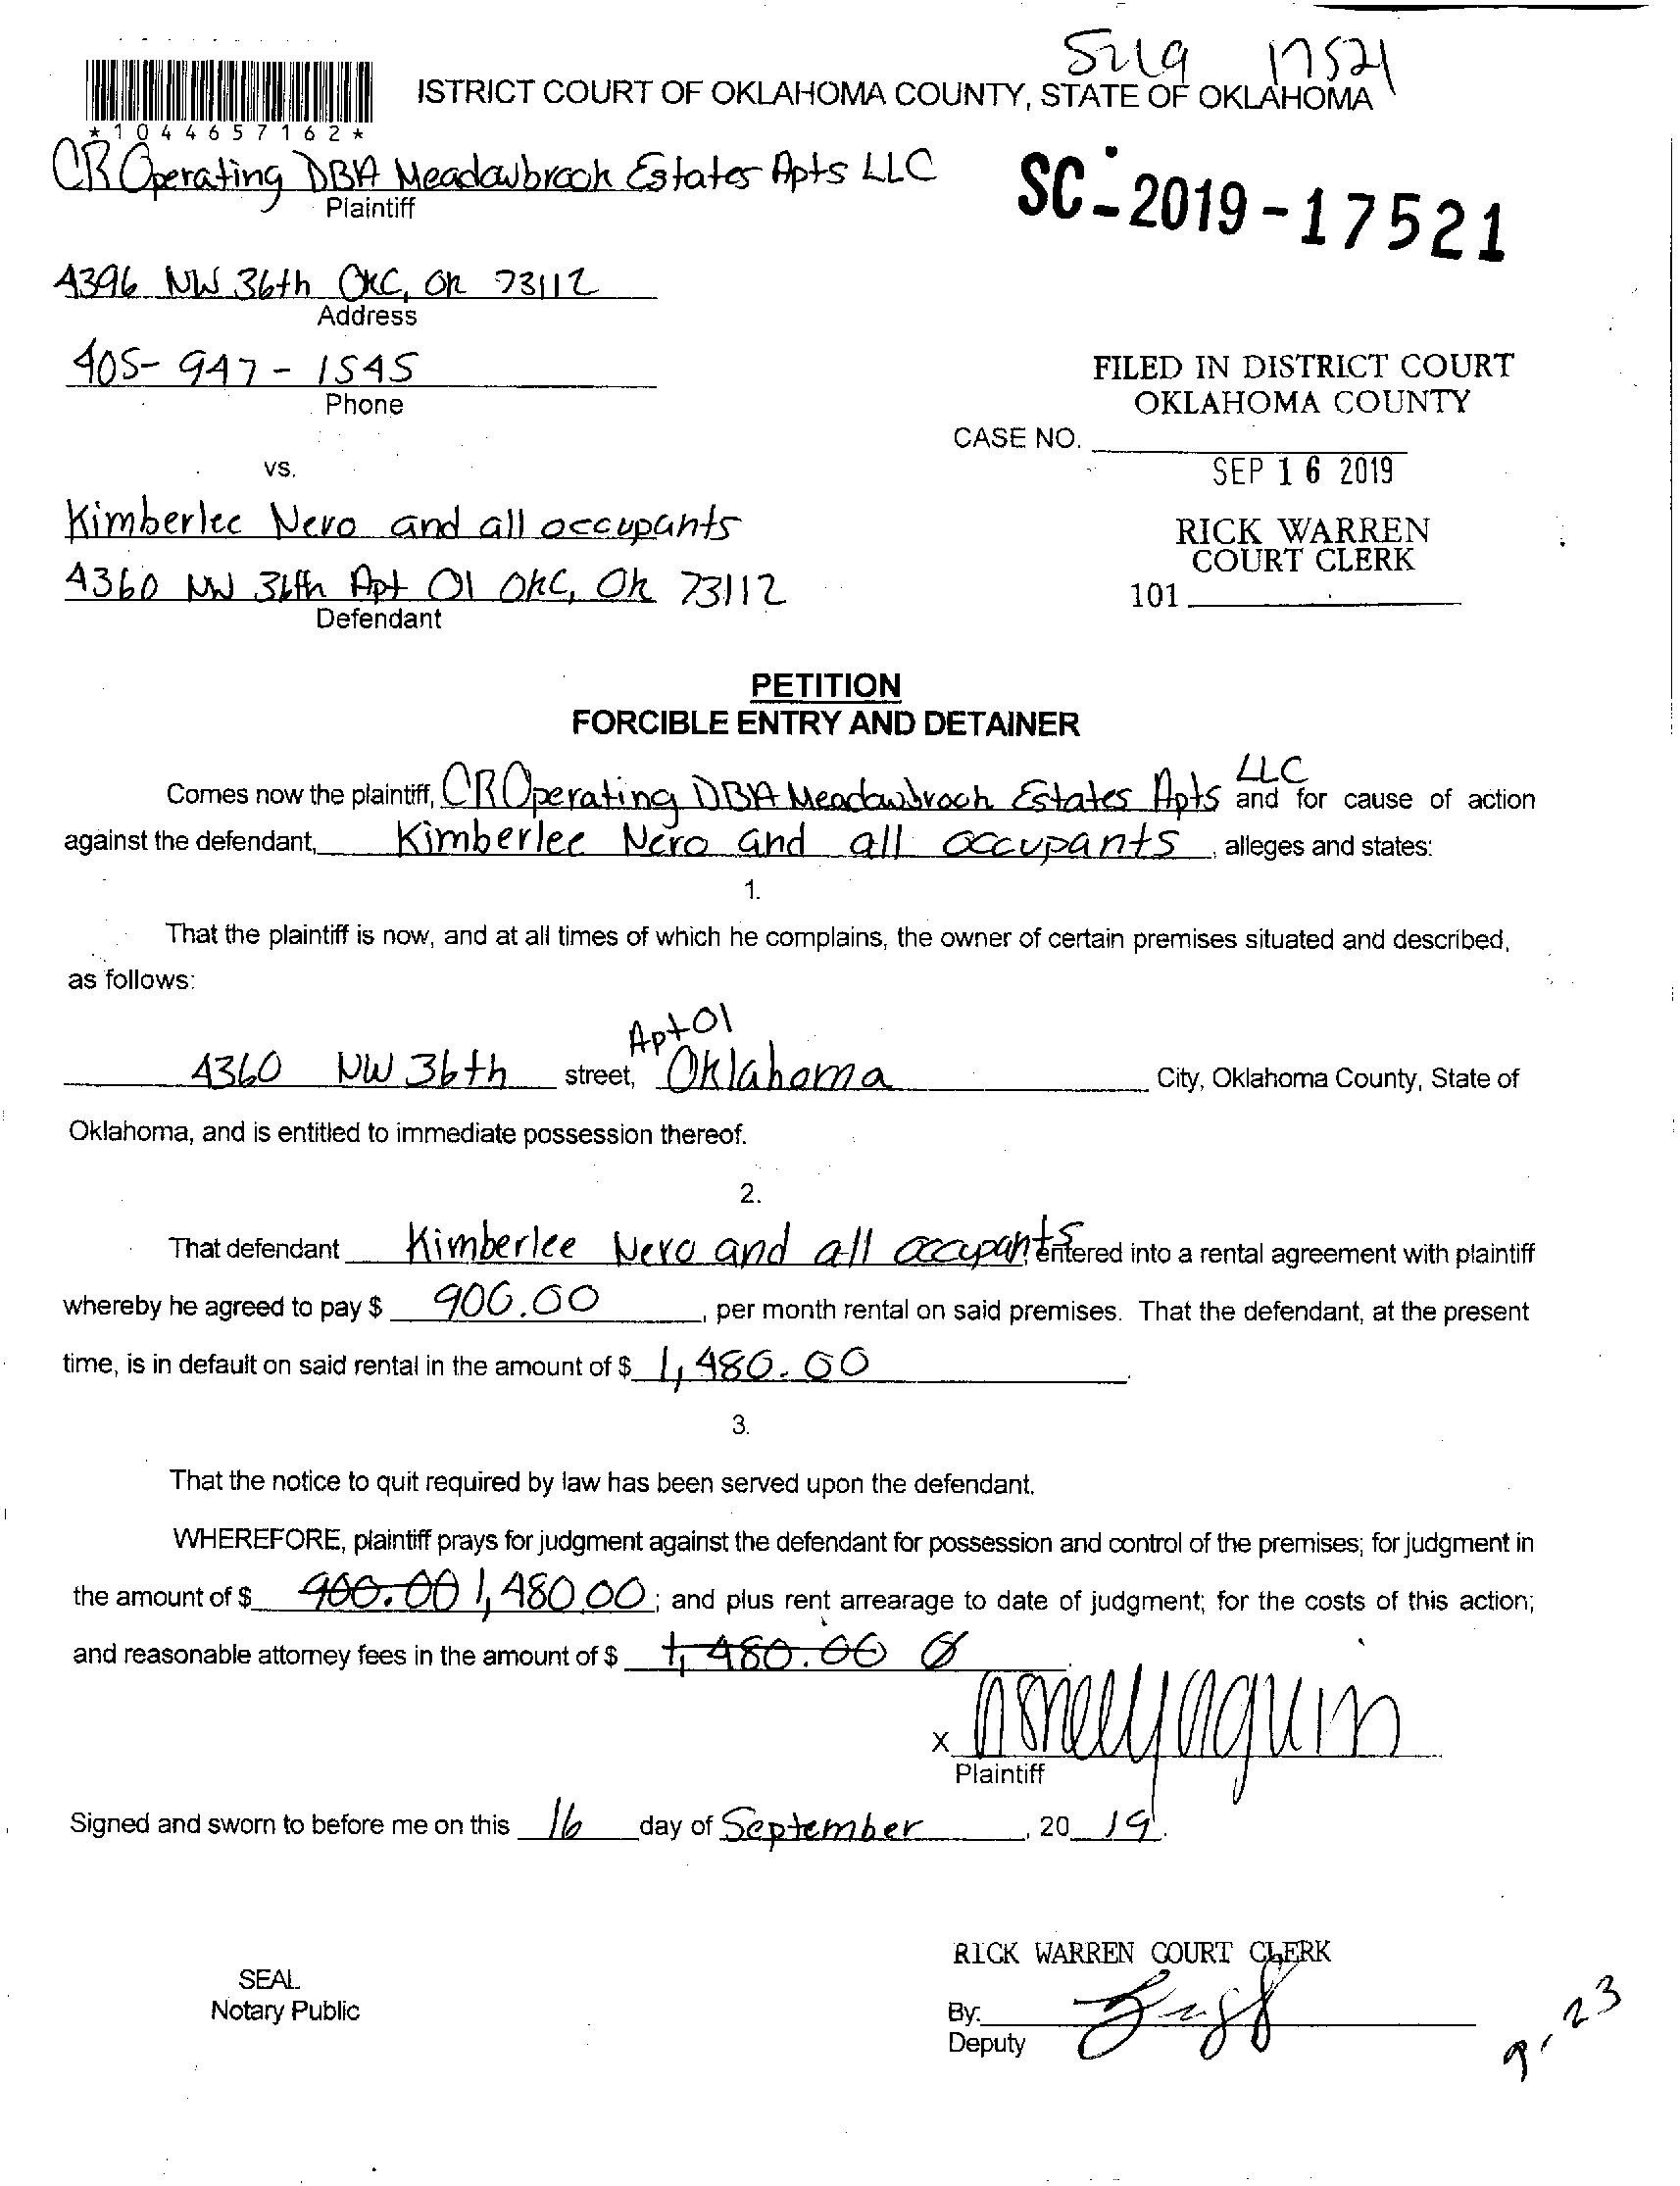 SC19 17521
ISTRICT COURT OF OKLAHOMA COUNTY, STATE OF OKLAHOMA
*1044657162*
CR Operating DBA Meadowbrook Estates Apts LLC
Plaintiff
SC-2019-17521
4396 NW 36th OKC, OK 73112
Address
405-947-1545
Phone
FILED IN DISTRICT COURT
OKLAHOMA COUNTY
CASE NO.
SEP 16 2019
vs.
Kimberlee Nero and all occupants
RICK WARREN
COURT CLERK
4360 NW 36th Apt 01 OKC, OK 73112
101
Defendant
PETITION
FORCIBLE ENTRY AND DETAINER
Comes now the plaintiff, CR Operating DBA Meadowbrook Estates Apts LLC and for cause of action
against the defendant, Kimberlee Nero and all occupants, alleges and states:
1.
That the plaintiff is now, and at all times of which he complains, the owner of certain premises situated and described,
as follows:
Apt 01
4360 NW 36th street, Oklahoma City, Oklahoma County, State of
Oklahoma, and is entitled to immediate possession thereof.
2.
That defendant Kimberlee Nero and all occupants, entered into a rental agreement with plaintiff
whereby he agreed to pay $ 900.00, per month rental on said premises. That the defendant, at the present
time, is in default on said rental in the amount of $ 1,480.00.
3.
That the notice to quit required by law has been served upon the defendant.
WHEREFORE, plaintiff prays for judgment against the defendant for possession and control of the premises; for judgment in
the amount of $ 900.00 1,480.00; and plus rent arrearage to date of judgment; for the costs of this action;
and reasonable attorney fees in the amount of $ 1,480.00 0
x
Plaintiff
Signed and sworn to before me on this 16 day of September, 2019.
RICK WARREN COURT CLERK
SEAL
Notary Public
By:
Deputy
9-23